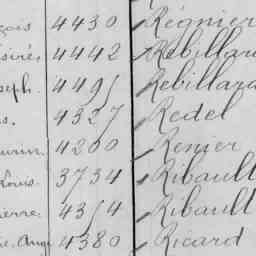 çois 4430 Régnier
ésirée 4442 Rebillard
seph. 4495 Rebillard
s. 4327 Redel
urin. 4200 Renier
Louis. 3734 Ribault
ierre. 4354 Ribault
re. Ange 4380 Ricard